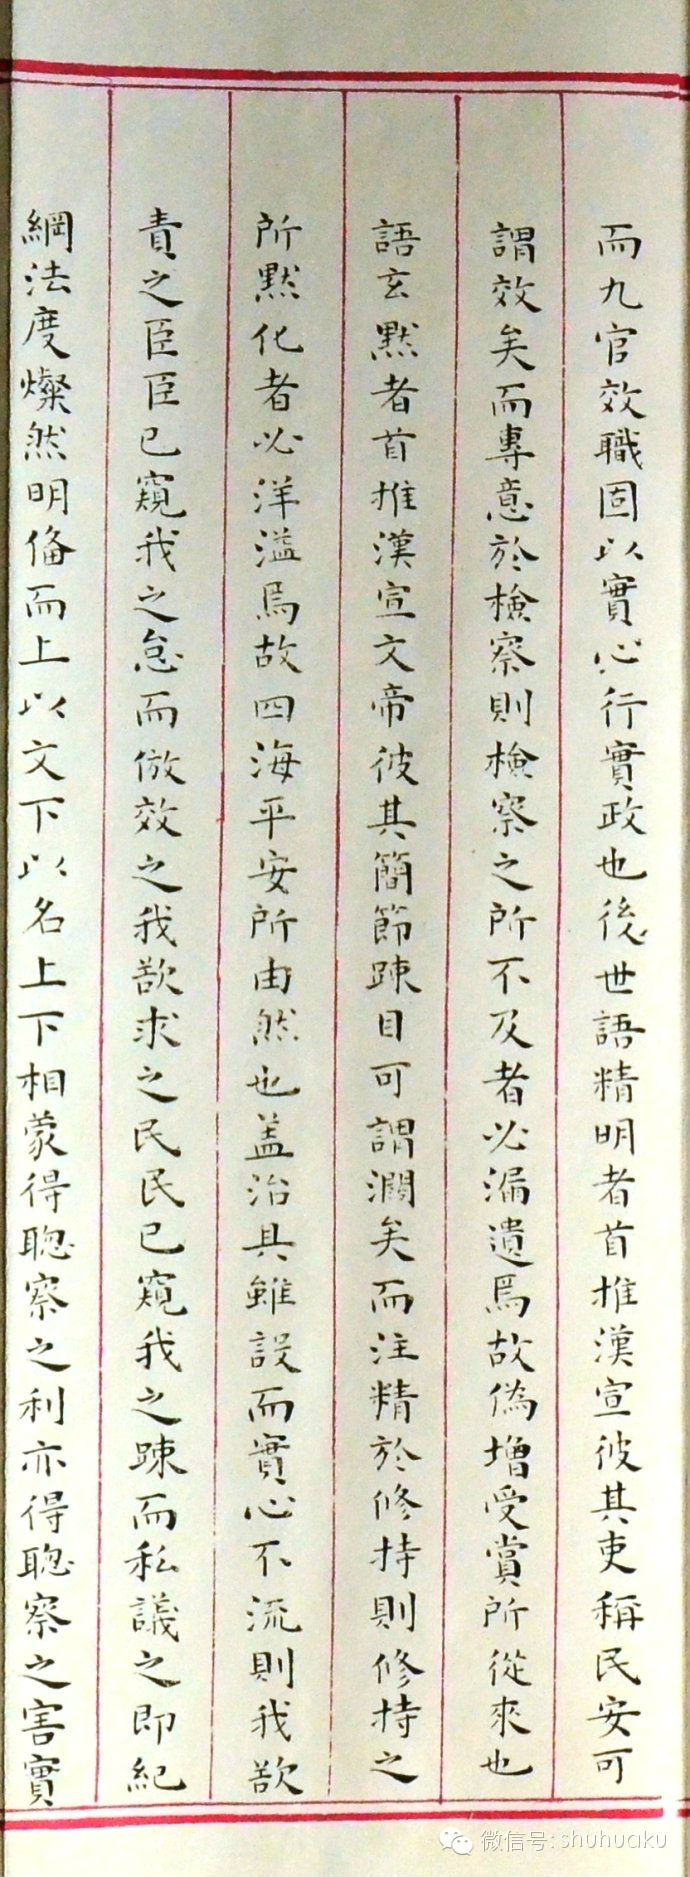 而九官效職固以實心行實政也後世語精明者首推漢宣彼其吏稱民安可
謂效矣而專意於檢察則檢察之所不及者必漏遺焉故偽增受賞所從來也
語玄默者首推漢宣文帝彼其簡節踈目可謂濶矣而注精於修持則修持之
所默化者必洋溢焉故四海平安所由然也盖治具雖設而實心不流則我欲
責之臣臣已窺我之怠而倣效之我欲求之民民已窺我之踈而私議之即紀
綱法度燦然明俻而上以文下以名上下相蒙得聰察之利亦得聰察之害實
微信号: shuhuaku